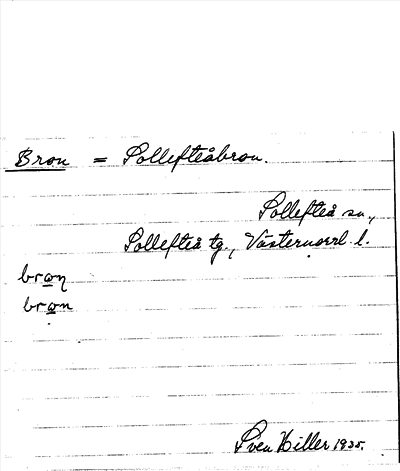 Bron = Sollefteåbron.
Sollefteå sn.,
Sollefteå tg., Västernorrl. l.
bron̥
bron
Sven Hiller 1935.